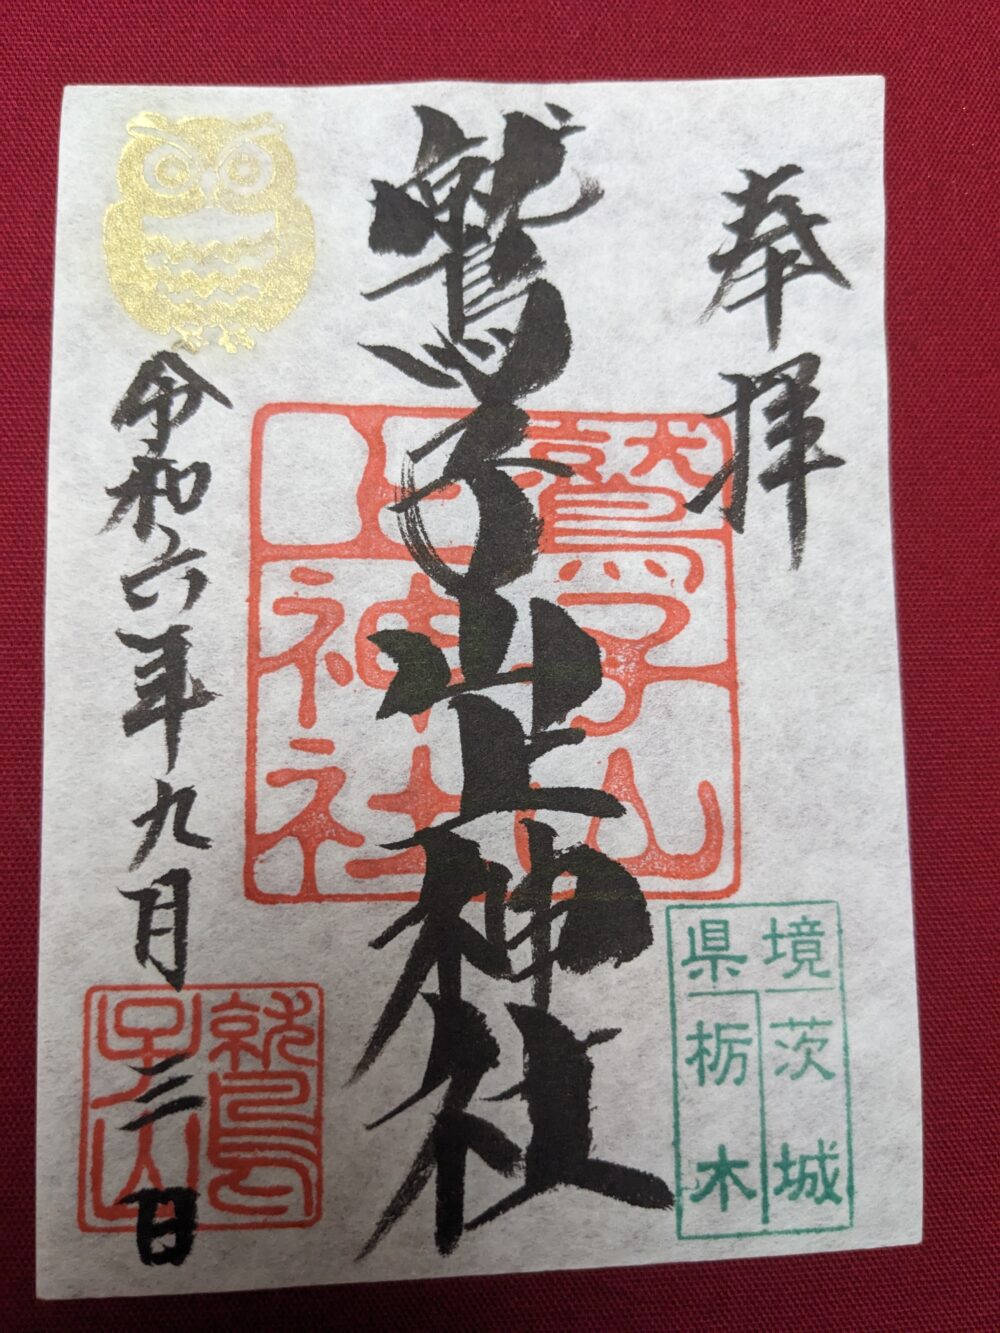 奉拝
鷲子山上神社
鷲子山
上神社
県境
茨城
栃木
令和六年九月二日
鷲
子山